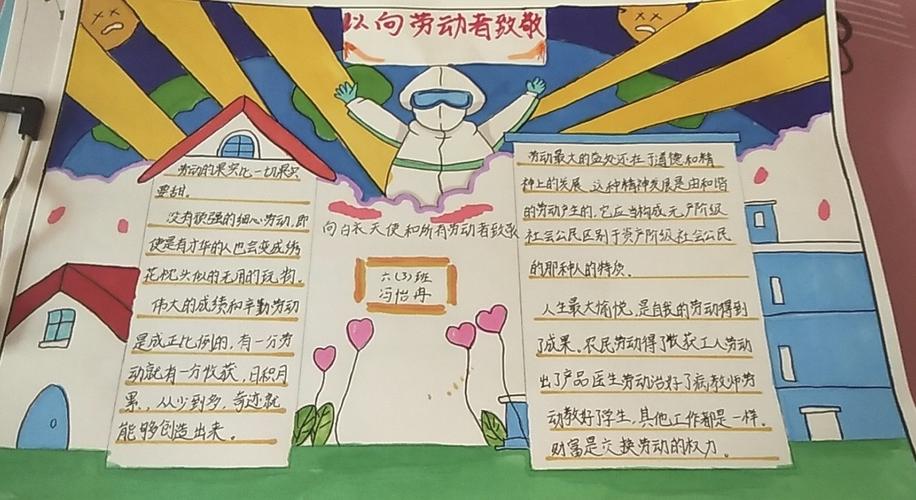 以向劳动者致敬
劳动的果实比一切果实
要甜。
没有顽强的细心劳动,即
使是有才华的人也会变成绣
花枕头似的无用的玩物。
伟大的成绩和辛勤劳动
是成正比例的,有一分劳
动就有一分收获,日积月
累,从少到多,奇迹就
能够创造出来。
向白衣天使和所有劳动者致敬
六(3)班
冯怡冉
劳动最大的益处还在于道德和精
神上的发展。这种精神发展是由和谐
的劳动产生的,它应当构成无产阶级
社会公民区别于资产阶级社会公民
的那种人的特质。
人生最大愉悦,是自我的劳动得到
了成果。农民劳动得了收获工人劳动
出了产品医生劳动治好了病教师劳
动教好了学生,其他工作都是一样。
财富是交换劳动的权力。